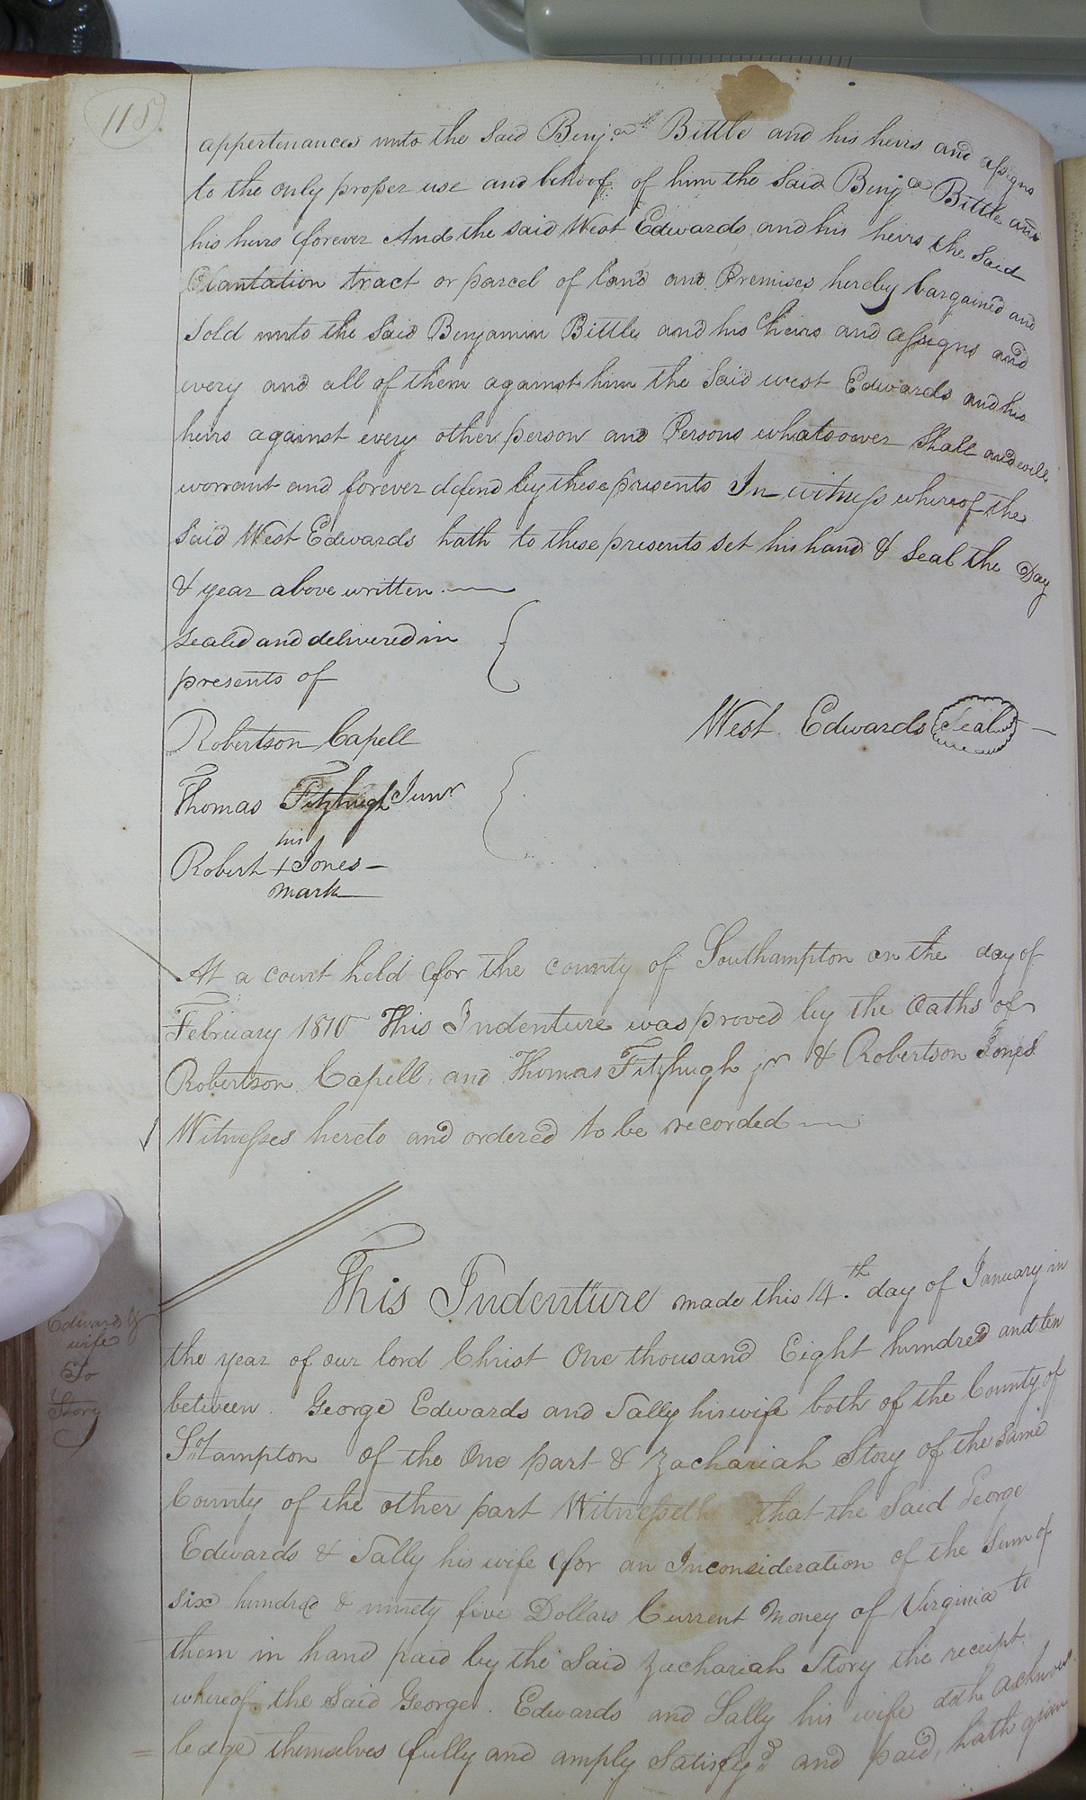 118.
appertenances unto the said Benja. Bittle and his heirs and assigns
to the only proper use and behoof of him the Said Benja Bittle and
his heirs forever And the said West Edwards and his heirs the Said
Plantation tract or parcel of land and Premises hereby bargained and
Sold unto the Said Benjamin Bittle and his heirs and assigns and
every and all of them against him the Said west Edwards and his
heirs against every other person and Persons whatsoever Shall and will
worrant and forever defend by these presents In witness whereof the
Said West Edwards hath to these presents set his hand & Seal the Day
& year above written.
Sealed and delivered in
presents of
Robertson Capell
West Edwards Seal
Thomas Fitzhugh Junr
his
Robert + Jones
mark
At a court held for the county of Southampton on the day of
February 1810 This Indenture was proved by the Oaths of
Robertson Capell and Thomas Fitzhugh jr & Robertson Jones
Witnesses hereto and ordered to be recorded
This Indenture made this 14th day of January in
Edwards &
wife
To
Story
the year of our lord Christ One thousand Eight hundred and ten
between George Edwards and Sally his wife both of the County of
SHampton of the One part & Zachariah Story of the Same
County of the other part Witnesseth that the Said George
Edwards & Sally his wife for an Inconsideration of the Sum of
six hundred & ninety five Dollars Current Money of Virginia to
them in hand paid by the Said Zachariah Story the receipt
whereof the Said George Edwards and Sally his wife doth acknow
ledge themselves fully and amply Satisfy'd and paid, hath given